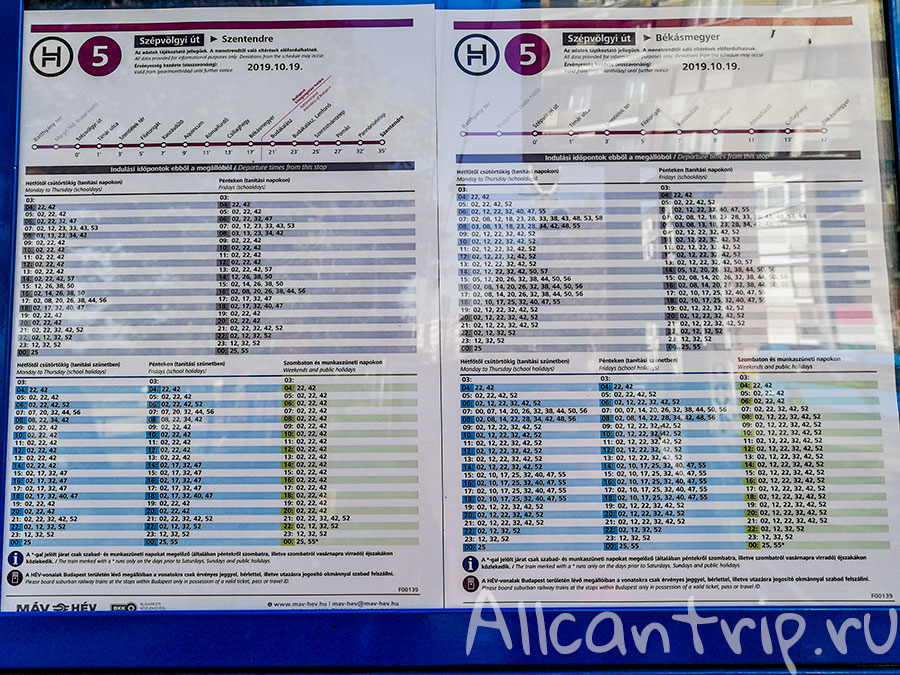 H 5 Szépvölgyi út ▶ Szentendre
Az adatok tájékoztató jellegűek. A menetrendtől való eltérések előfordulhatnak.
All data provided for informational purposes only. Deviations from the schedule may occur.
Érvényesség kezdete (visszavonásig):
Valid from (year/month/day) until further notice
2019.10.19.
Batthyány tér
Szépvölgyi út
Tímár utca
Szentlélek tér
Filatorigát
Kaszásdűlő
Aquincum
Rómaifürdő
Csillaghegy
Békásmegyer
Budakalász
Budakalász, Lenfonó
Szentistvántelep
Pomáz
Pannóniatelep
Szentendre
0' 1' 3' 5' 7' 9' 11' 13' 17' 21' 23' 25' 27' 32' 35'
Indulási időpontok ebből a megállóból / Departure times from this stop
Hétfőtől csütörtökig (tanítási napokon)
Monday to Thursday (schooldays)
03:
04: 22, 42
05: 02, 22, 42
06: 02, 22, 32, 47
07: 02, 12, 23, 33, 43, 53
08: 03, 13, 23, 34, 42
09: 02, 22, 42
10: 02, 22, 42
11: 02, 22, 42
12: 02, 22, 42
13: 02, 22, 42
14: 02, 22, 42, 57
15: 12, 26, 38, 50
16: 02, 14, 26, 38, 50
17: 02, 08, 20, 26, 38, 44, 56
18: 02, 17, 32, 40, 47
19: 02, 22, 42
20: 02, 22, 42
21: 02, 22, 32, 42, 52
22: 02, 12, 32, 52
23: 12, 32, 52
00: 25
Pénteken (tanítási napokon)
Fridays (schooldays)
03:
04: 22, 42
05: 02, 22, 42
06: 02, 22, 32, 47
07: 02, 12, 23, 33, 43, 53
08: 03, 13, 23, 34, 42
09: 02, 22, 42
10: 02, 22, 42
11: 02, 22, 42
12: 02, 22, 42
13: 02, 22, 42, 57
14: 12, 26, 38, 50
15: 02, 14, 26, 38, 50
16: 02, 08, 20, 26, 38, 44, 56
17: 02, 17, 32, 47
18: 02, 17, 32, 40, 47
19: 02, 22, 42
20: 02, 22, 42
21: 02, 22, 32, 42, 52
22: 02, 12, 32, 52
23: 12, 32, 52
00: 25, 55
Hétfőtől csütörtökig (tanítási szünetben)
Monday to Thursday (school holidays)
03:
04: 22, 42
05: 02, 22, 42
06: 02, 22, 42, 52
07: 07, 20, 32, 44, 56
08: 08, 22, 34, 42
09: 02, 22, 42
10: 02, 22, 42
11: 02, 22, 42
12: 02, 22, 42
13: 02, 22, 42
14: 02, 22, 42
15: 02, 17, 32, 47
16: 02, 17, 32, 47
17: 02, 17, 32, 47
18: 02, 17, 32, 40, 47
19: 02, 22, 42
20: 02, 22, 42
21: 02, 22, 32, 42, 52
22: 02, 12, 32, 52
23: 12, 32, 52
00: 25
Pénteken (tanítási szünetben)
Fridays (school holidays)
03:
04: 22, 42
05: 02, 22, 42
06: 02, 22, 42, 52
07: 07, 20, 32, 44, 56
08: 08, 22, 42
09: 02, 22, 42
10: 02, 22, 42
11: 02, 22, 42
12: 02, 22, 42
13: 02, 22, 42
14: 02, 17, 32, 47
15: 02, 17, 32, 47
16: 02, 17, 32, 47
17: 02, 17, 32, 47
18: 02, 17, 32, 40, 47
19: 02, 22, 42
20: 02, 22, 42
21: 02, 22, 32, 42, 52
22: 02, 12, 32, 52
23: 12, 32, 52
00: 25, 55
Szombaton és munkaszüneti napokon
Weekends and public holidays
03:
04: 22, 42
05: 02, 22, 42
06: 02, 22, 42
07: 02, 22, 42
08: 02, 22, 42
09: 02, 22, 42
10: 02, 22, 42
11: 02, 22, 42
12: 02, 22, 42
13: 02, 22, 42
14: 02, 22, 42
15: 02, 22, 42
16: 02, 22, 42
17: 02, 22, 42
18: 02, 22, 42
19: 02, 22, 42
20: 02, 22, 42
21: 02, 22, 32, 42, 52
22: 02, 12, 32, 52
23: 12, 32, 52
00: 25, 55*
A *-gal jelölt járat csak szabad- és munkaszüneti napokat megelőző (általában péntekről szombatra, illetve szombatról vasárnapra virradó) éjszakákon
közlekedik. / The train marked with a * runs only on the days prior to Saturdays, Sundays and Public holidays.
A HÉV-vonalak Budapest területén lévő megállóiban a vonatokra csak érvényes jeggyel, bérlettel, illetve utazásra jogosító okmánnyal szabad felszállni.
Please board suburban railway trains at the stops within Budapest only in possession of a valid ticket, pass or travel ID.
MÁV HÉV BKK
www.mav-hev.hu | mav-hev@mav-hev.hu
F00139
H 5 Szépvölgyi út ▶ Békásmegyer
Az adatok tájékoztató jellegűek. A menetrendtől való eltérések előfordulhatnak.
All data provided for informational purposes only. Deviations from the schedule may occur.
Érvényesség kezdete (visszavonásig):
Valid from (year/month/day) until further notice
2019.10.19.
Batthyány tér
Szépvölgyi út
Tímár utca
Rómaifürdő
Csillaghegy
Békásmegyer
Indulási időpontok ebből a megállóból / Departure times from this stop
Hétfőtől csütörtökig (tanítási napokon)
Monday to Thursday (schooldays)
03:
04: 22, 42
05: 02, 22, 42, 52
06: 02, 12, 22, 32, 40, 47, 55
07: 02, 08, 12, 18, 23, 28, 33, 38, 43, 48, 53, 58
08: 03, 08, 13, 18, 23, 28, 34, 42, 48, 55
09: 02, 12, 22, 32, 42, 52
10: 02, 12, 22, 32, 42, 52
11: 02, 12, 22, 32, 42, 52
12: 02, 12, 22, 32, 42, 52
13: 02, 12, 22, 32, 42, 52
14: 02, 12, 22, 32, 42, 50, 57
15: 05, 12, 20, 26, 32, 38, 44, 50, 56
16: 02, 08, 14, 20, 26, 32, 38, 44, 50, 56
17: 02, 08, 14, 20, 26, 32, 38, 44, 50, 56
18: 02, 10, 17, 25, 32, 40, 47, 55
19: 02, 12, 22, 32, 42, 52
20: 02, 12, 22, 32, 42, 52
21: 02, 12, 22, 32, 42, 52
22: 02, 12, 32, 52
23: 12, 32, 52
00: 25
Pénteken (tanítási napokon)
Fridays (schooldays)
03:
04: 22, 42
05: 02, 22, 42, 52
13: 02, 12, 22, 32, 42, 50, 57
17: 02, 10, 17, 25, 32, 40, 47, 55
18: 02, 10, 17, 25, 32, 40, 47, 55
19: 02, 12, 22, 32, 42, 52
20: 02, 12, 22, 32, 42, 52
21: 02, 12, 22, 32, 42, 52
22: 02, 12, 32, 52
23: 12, 32, 52
00: 25, 55
Hétfőtől csütörtökig (tanítási szünetben)
Monday to Thursday (school holidays)
03:
04: 22, 42
05: 02, 22, 42, 52
06: 02, 12, 22, 32, 42, 52
07: 00, 07, 14, 20, 26, 32, 38, 44, 50, 56
08: 02, 08, 14, 22, 28, 34, 42, 48, 56
09: 02, 12, 22, 32, 42, 52
10: 02, 12, 22, 32, 42, 52
11: 02, 12, 22, 32, 42, 52
12: 02, 12, 22, 32, 42, 52
13: 02, 12, 22, 32, 42, 52
14: 02, 12, 22, 32, 42, 52
15: 02, 10, 17, 25, 32, 40, 47, 55
16: 02, 10, 17, 25, 32, 40, 47, 55
17: 02, 10, 17, 25, 32, 40, 47, 55
18: 02, 10, 17, 25, 32, 40, 47, 55
19: 02, 12, 22, 32, 42, 52
20: 02, 12, 22, 32, 42, 52
21: 02, 12, 22, 32, 42, 52
22: 02, 12, 32, 52
23: 12, 32, 52
00: 25
Pénteken (tanítási szünetben)
Fridays (school holidays)
03:
04: 22, 42
05: 02, 22, 42, 52
06: 02, 12, 22, 32, 42, 52
07: 00, 07, 14, 20, 26, 32, 38, 44, 50, 56
08: 02, 08, 14, 22, 28, 34, 42, 48, 56
09: 02, 12, 22, 32, 42, 52
10: 02, 12, 22, 32, 42, 52
11: 02, 12, 22, 32, 42, 52
12: 02, 12, 22, 32, 42, 52
13: 02, 12, 22, 32, 42, 52
14: 02, 10, 17, 25, 32, 40, 47, 55
15: 02, 10, 17, 25, 32, 40, 47, 55
16: 02, 10, 17, 25, 32, 40, 47, 55
17: 02, 10, 17, 25, 32, 40, 47, 55
18: 02, 10, 17, 25, 32, 40, 47, 55
19: 02, 12, 22, 32, 42, 52
20: 02, 12, 22, 32, 42, 52
21: 02, 12, 22, 32, 42, 52
22: 02, 12, 32, 52
23: 12, 32, 52
00: 25, 55
Szombaton és munkaszüneti napokon
Weekends and public holidays
03:
04: 22, 42
05: 02, 22, 42
06: 02, 22, 42
07: 02, 12, 22, 32, 42, 52
08: 02, 12, 22, 32, 42, 52
09: 02, 12, 22, 32, 42, 52
10: 02, 12, 22, 32, 42, 52
11: 02, 12, 22, 32, 42, 52
12: 02, 12, 22, 32, 42, 52
13: 02, 12, 22, 32, 42, 52
14: 02, 12, 22, 32, 42, 52
15: 02, 12, 22, 32, 42, 52
16: 02, 12, 22, 32, 42, 52
17: 02, 12, 22, 32, 42, 52
18: 02, 12, 22, 32, 42, 52
19: 02, 12, 22, 32, 42, 52
20: 02, 12, 22, 32, 42, 52
21: 02, 12, 22, 32, 42, 52
22: 02, 12, 32, 52
23: 12, 32, 52
00: 25, 55*
A *-gal jelölt járat csak szabad- és munkaszüneti napokat megelőző (általában péntekről szombatra, illetve szombatról vasárnapra virradó) éjszakákon
közlekedik. / The train marked with a * runs only on the days prior to Saturdays, Sundays and Public holidays.
A HÉV-vonalak Budapest területén lévő megállóiban a vonatokra csak érvényes jeggyel, bérlettel, illetve utazásra jogosító okmánnyal szabad felszállni.
Please board suburban railway trains at the stops within Budapest only in possession of a valid ticket, pass or travel ID.
F00139
Allcantrip.ru